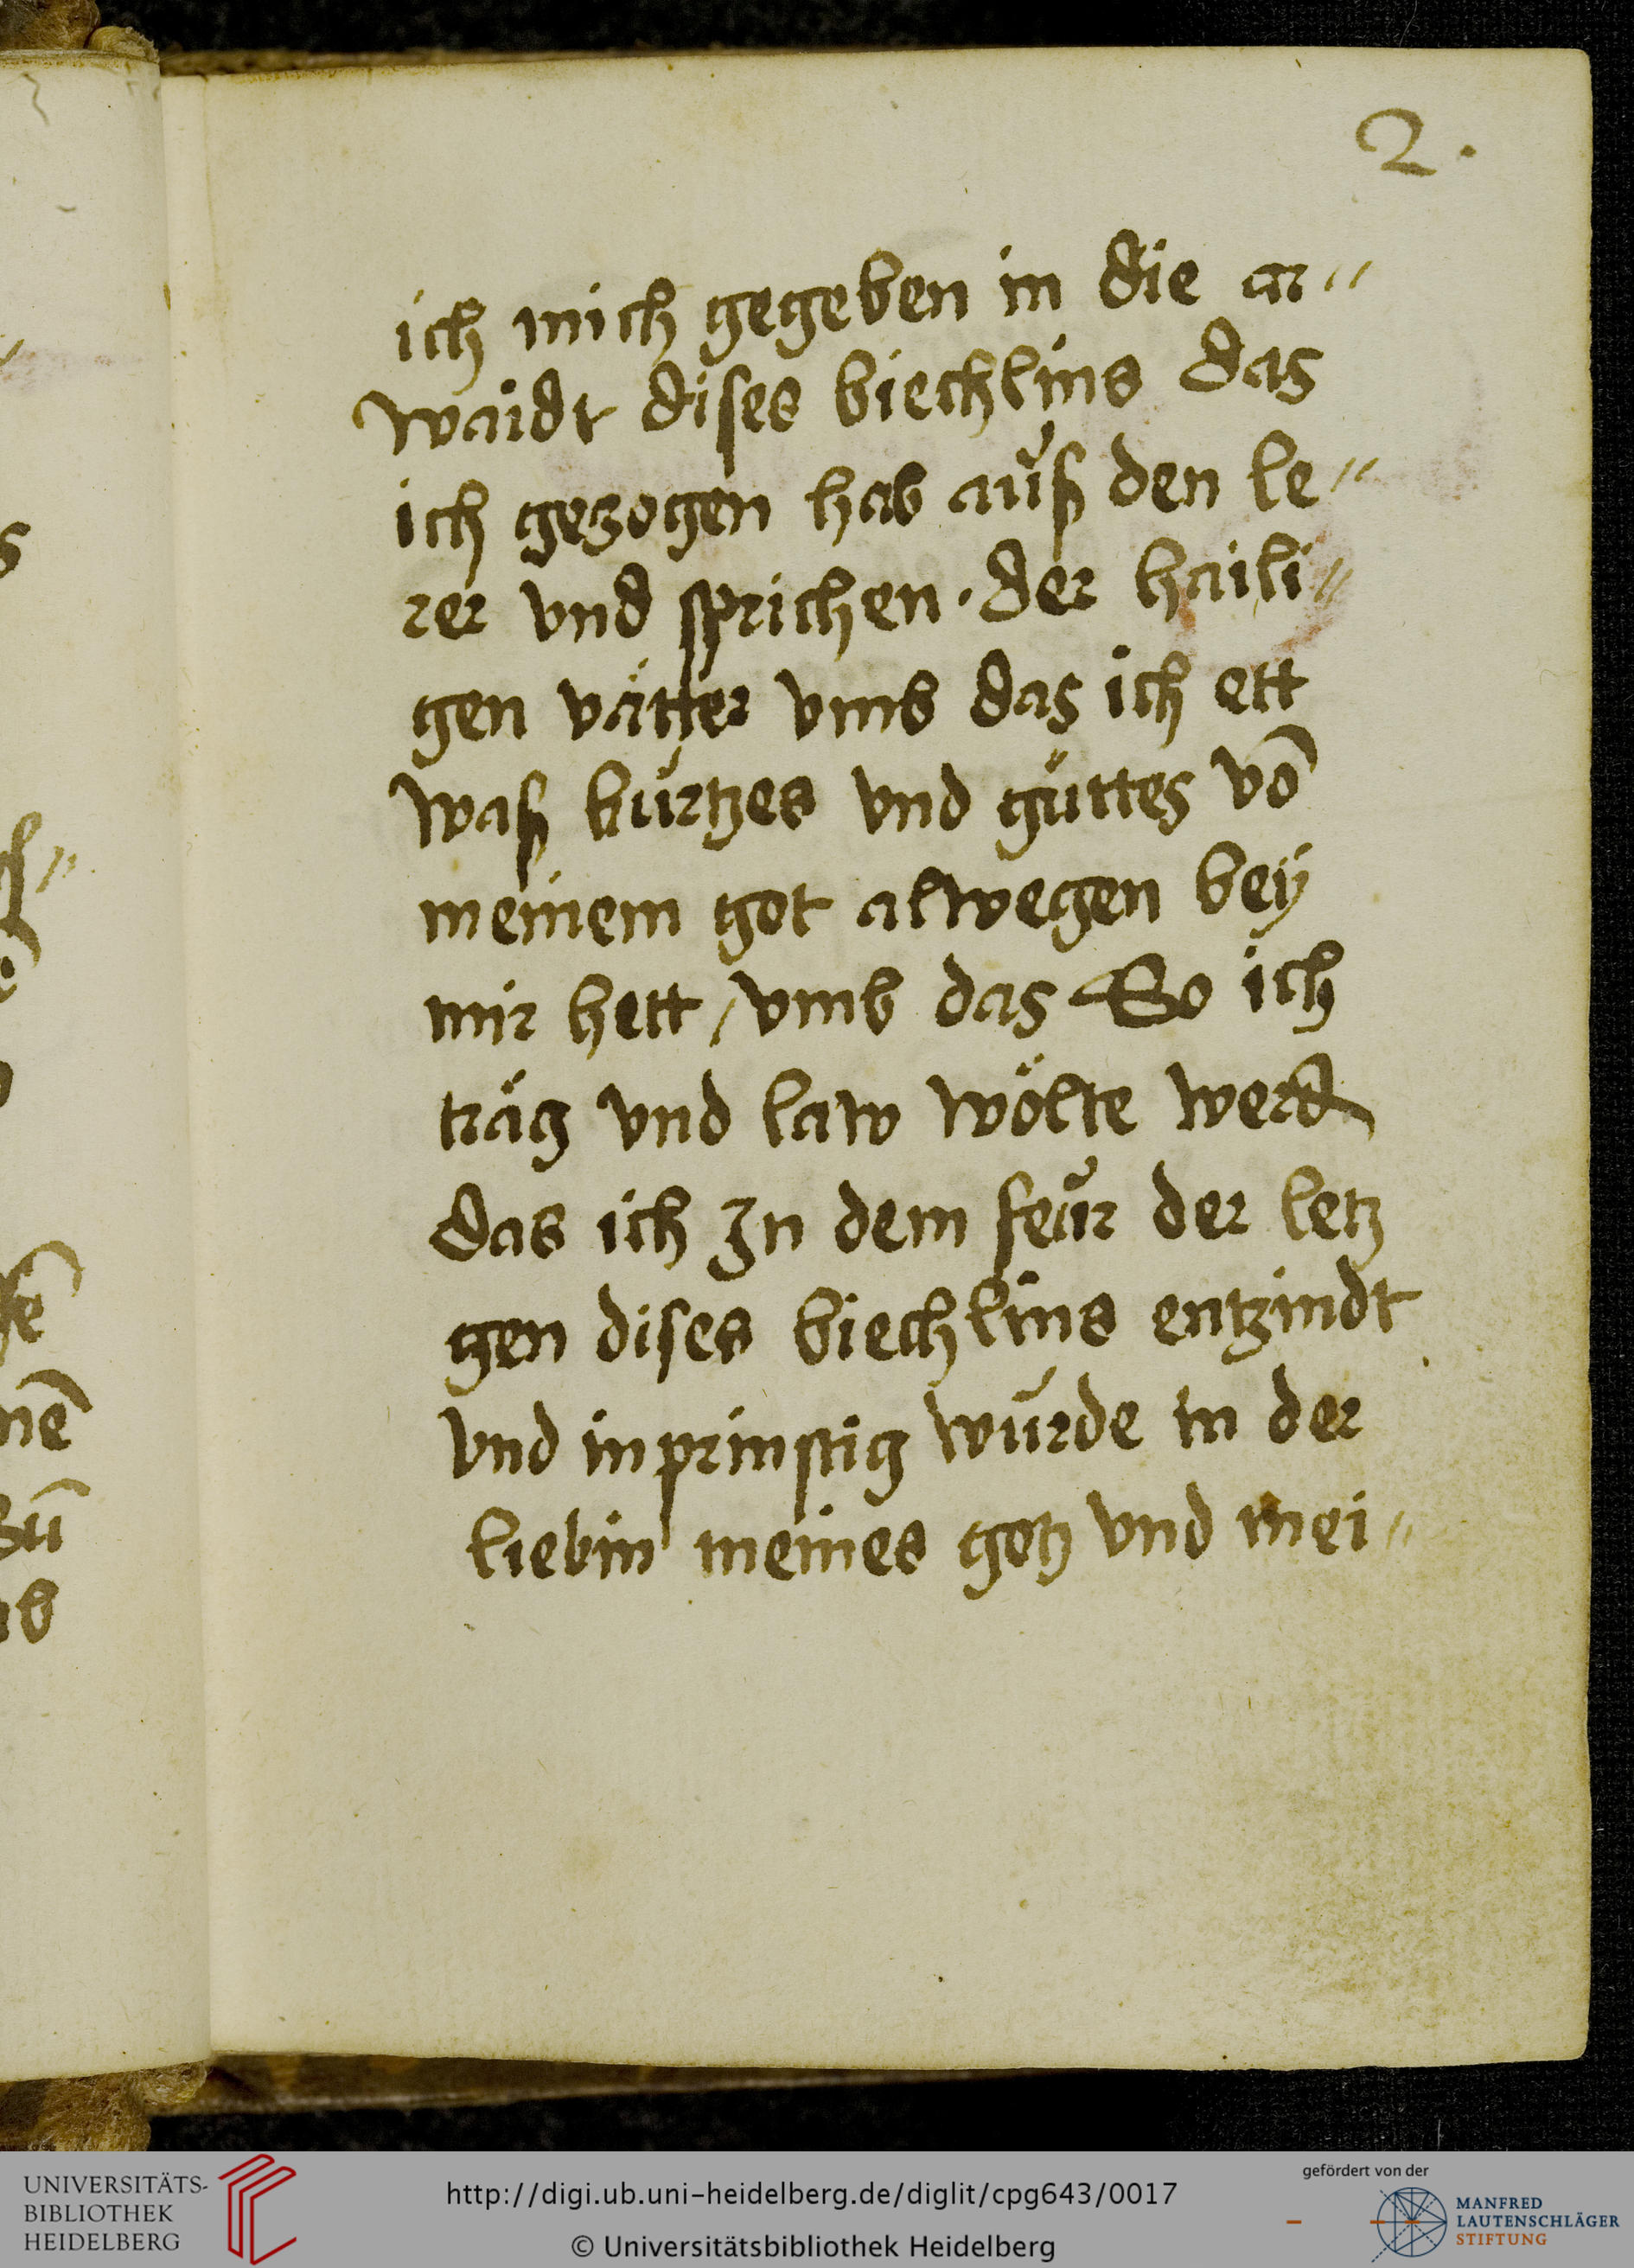 2.
ich mich gegeben in die ar"
waidt dises biechlins das
ich gezogen hab auß den le"
rer vnd sprichen. der haili"
gen vätter vmb das ich ett
waß kurtzes vnd güttes vō
meinem got alwegen bey
mir hett / vmb das So ich
träg vnd law wölte werd
das ich Jn dem feur der letz
gen dises biechlins entzindt
vnd inprinstig wurde in der
liebin meines gotz vnd mei"
UNIVERSITÄTS-
BIBLIOTHEK
HEIDELBERG
http://digi.ub.uni-heidelberg.de/diglit/cpg643/0017
© Universitätsbibliothek Heidelberg
gefördert von der
MANFRED
LAUTENSCHLÄGER
STIFTUNG